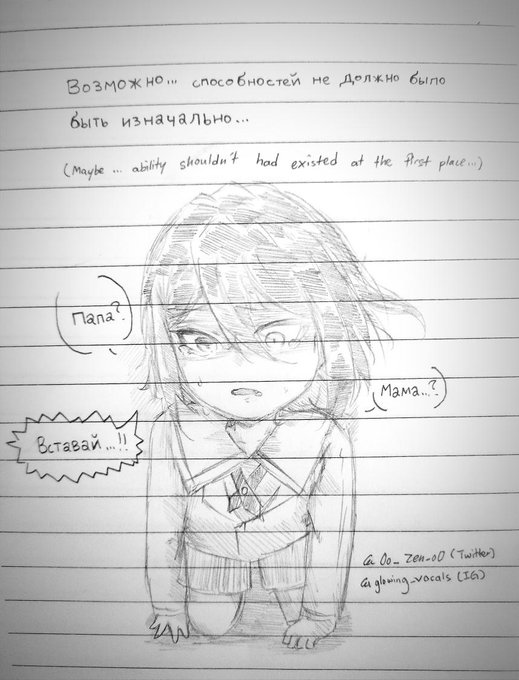 Возможно... способностей не должно было
быть изначально...
(Maybe ... ability shouldn't had existed at the first place...)
Папа?
Мама...?
Вставай...!!
@Oo_Zen_oO (Twitter)
@glowing_vocals (IG)